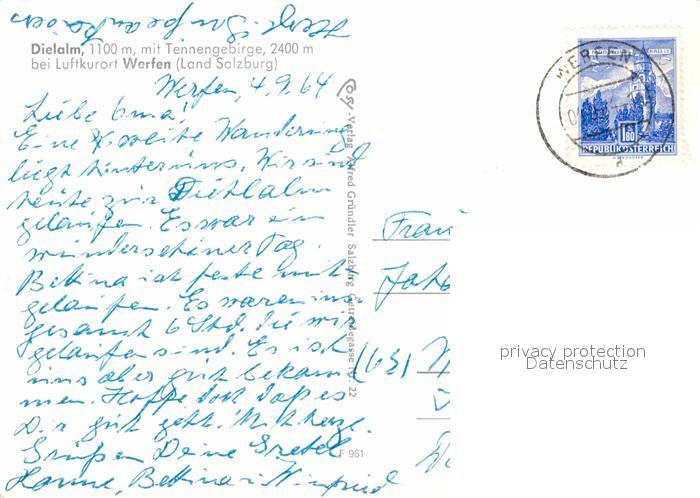 Herzl.
Dielalm, 1100 m, mit Tennengebirge, 2400 m
bei Luftkurort Werfen (Land Salzburg)
Werfen, 4.9.64
Liebe Oma,
Eine zweite Wanderung
liegt hinter uns. Wir sind
heute zur Diehlalm
gelaufen. Es war ein
wunderschöner Tag.
Bettina ist feste mit
gelaufen. Es waren ins
gesamt 6 Std. die wir
gelaufen sind. Es ist
uns aber gut bekom
men. Hoffe doch daß es
Dir gut geht. Mit herzl.
Grüßen Deine Gretel
Hanne, Bettina u. Winfried
Cosy-Verlag Alfred Gründler Salzburg, Getreidegasse 22
F 961
WERFEN
1.80
REPUBLIK ÖSTERREICH
Frau
(63)
privacy protection
Datenschutz